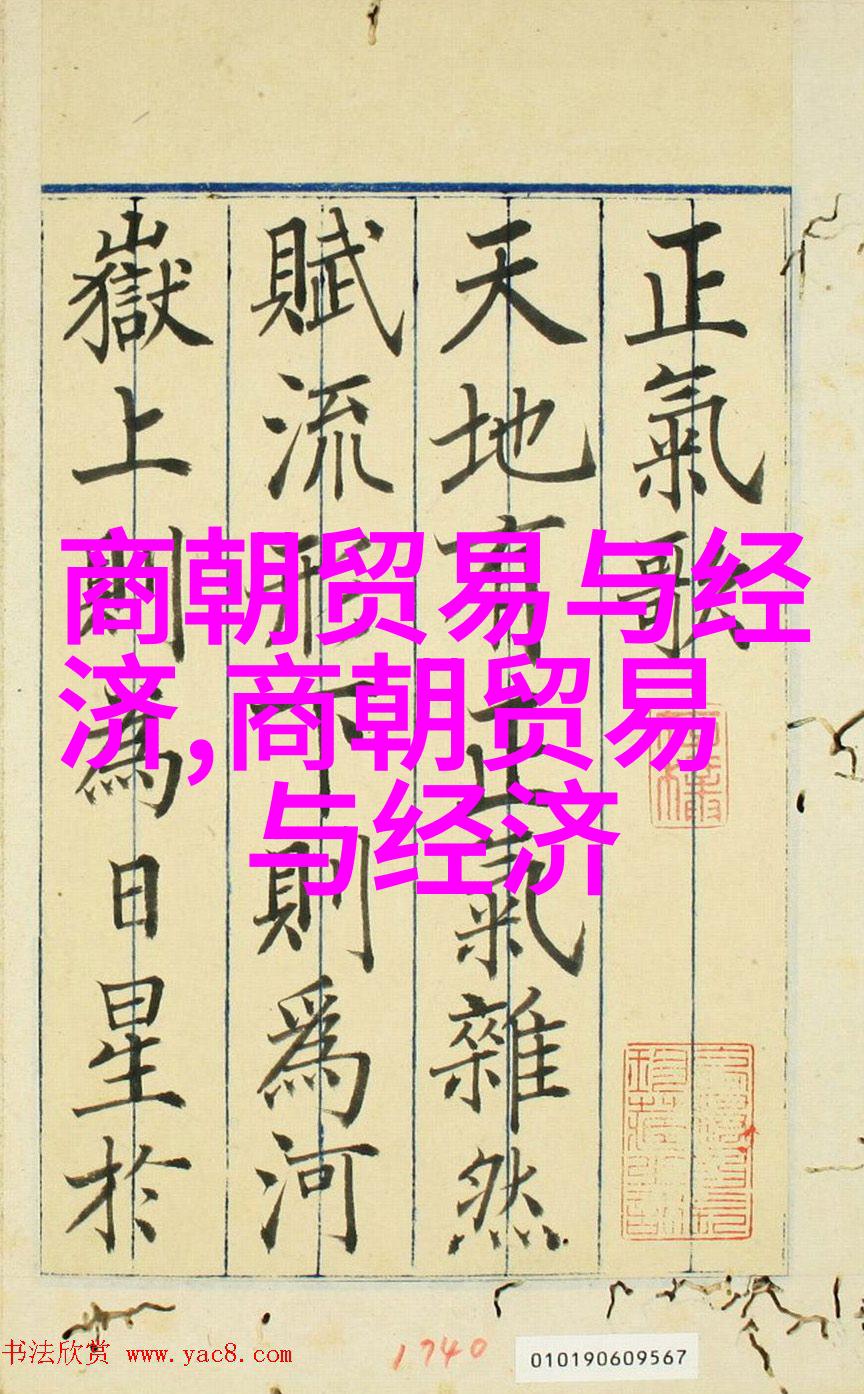 商朝贸易与经
济,商朝贸易
与经济
正氣歌
天地有正氣雜然
賦流形下則為河
嶽上則為日星於
书法欣赏 www.yac8.com
1740
010190609567